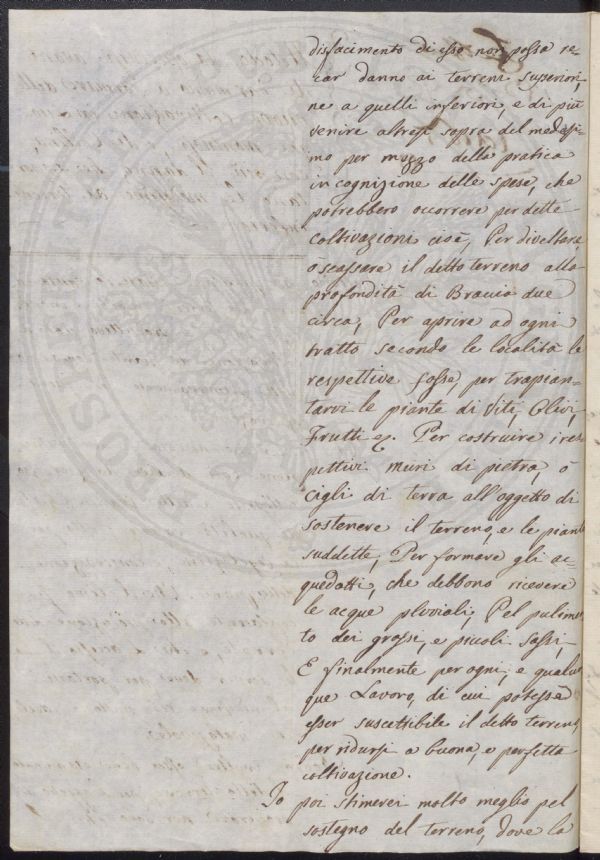 disfacimento di esso non possa re-
car danno ai terreni superiori,
ne a quelli inferiori, e di più
venire altresì sopra del medesi-
mo per mezzo della pratica
in cognizione delle spese, che
potrebbero occorrere per dette
coltivazioni cioè, Per divettare,
ò scassare il detto terreno alla
profondità di Braccia due
circa, Per aprire ad ogni
tratto secondo le località le
respettive fosse, per trapian-
tarvi le piante di Viti, Olivi,
Frutti &. Per costruire i res-
pettivi muri di pietra, ò
cigli di terra all'oggetto di
sostenere il terreno, e le piante
suddette, Per formare gli ac-
quedotti, che debbono ricevere
le acque pluviali, Pel pulimen-
to dei grossi, e piccoli sassi,
E finalmente per ogni, e qualun-
que Lavoro, di cui potesse
esser suscettibile il detto terreno,
per ridursi a buona, e perfetta
coltivazione.
Io poi stimerei molto meglio pel
sostegno del terreno, dove la